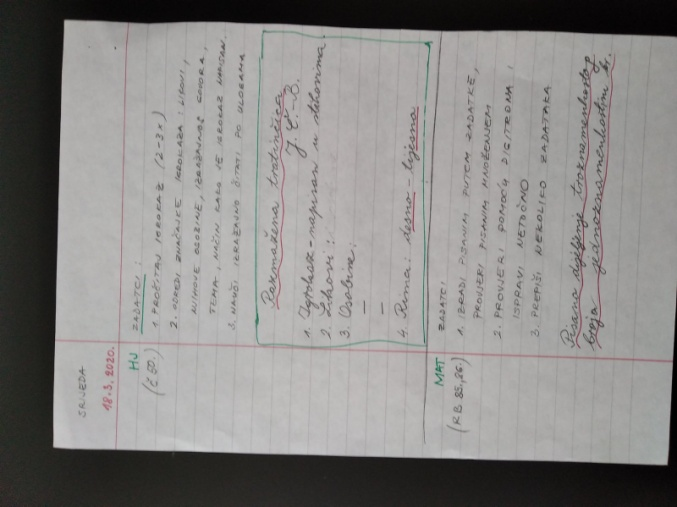 SRIJEDA
18.3.2020.
HJ
(Č 50.)
ZADATCI:
1. PROČITAJ IGROKAZ (2-3x)
2. ODREDI ZNAČAJKE IGROKAZA: LIKOVI,
NJIHOVE OSOBINE, IZRAŽAJNOST GOVORA,
TEMA, NAČIN KAKO JE IGROKAZ NAPISAN.
3. NAUČI IZRAŽAJNO ČITATI PO ULOGAMA
Razmažena tratinčica
1. Igrokaz - napisan u stihovima
2. Likovi:
3. Osobine:
-
-
4. Rima: desno - bijesno
MAT
(RB 85, 86)
ZADATCI
1. IZRADI PISANIM PUTEM ZADATKE,
PROVJERI PISANIM MNOŽENJEM
2. PROVJERI POMOĆU DIGITRONA I
ISPRAVI NETOČNO
3. PREPIŠI NEKOLIKO ZADATAKA
Pisano dijeljenje troznamenkastog
broja jednoznamenkastim br.